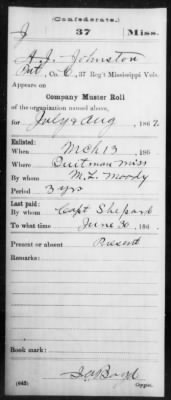 (Confederate.)
J 37 Miss.
A. J. Johnston
Pvt, Co. C, 37 Reg't Mississippi Vols.
Appears on
Company Muster Roll
of the organization named above,
for July & Aug, 1862
Enlisted:
When Mch 13, 186
Where Quitman Miss
By whom M. L. Moody
Period 3 yrs
Last paid:
By whom Capt Shepard
To what time June 30, 186
Present or absent Present
Remarks:
Book mark:
(642) Copyist.